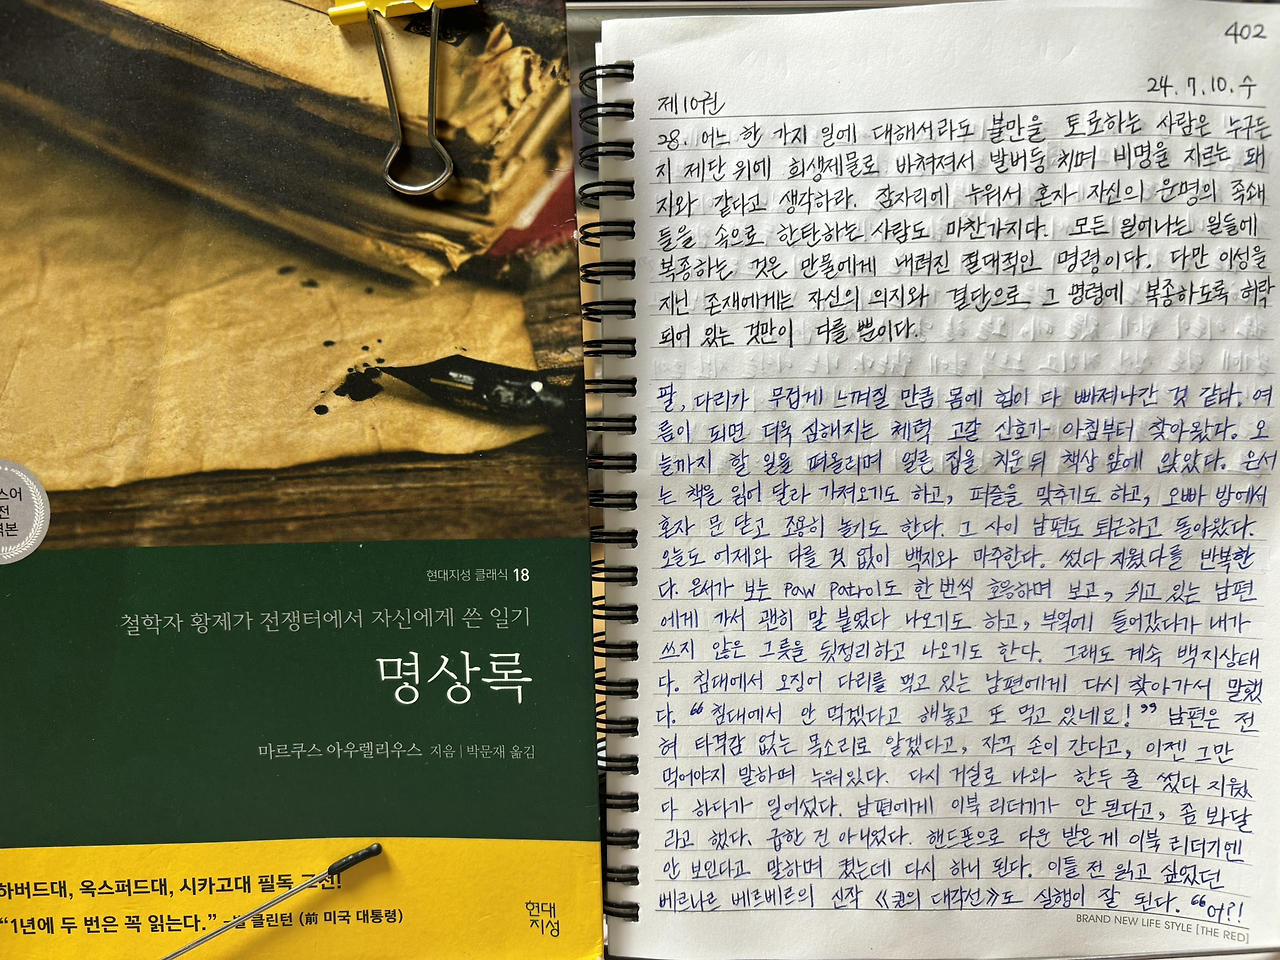 스어
전
역본
현대지성 클래식 18
철학자 황제가 전쟁터에서 자신에게 쓴 일기
명상록
마르쿠스 아우렐리우스 지음 | 박문재 옮김
하버드대, 옥스퍼드대, 시카고대 필독 고전!
“1년에 두 번은 꼭 읽는다.” -빌 클린턴 (前 미국 대통령)
현대
지성
402
24. 7. 10. 수
제10권
28. 어느 한 가지 일에 대해서라도 불만을 토로하는 사람은 누구든
지 제단 위에 희생제물로 바쳐져서 발버둥 치며 비명을 지르는 돼
지와 같다고 생각하라. 잠자리에 누워서 혼자 자신의 운명의 족쇄
들을 속으로 한탄하는 사람도 마찬가지다. 모든 일어나는 일들에
복종하는 것은 만물에게 내려진 절대적인 명령이다. 다만 이성을
지닌 존재에게는 자신의 의지와 결단으로 그 명령에 복종하도록 허락
되어 있는 것만이 다를 뿐이다.
팔, 다리가 무겁게 느껴질 만큼 몸에 힘이 다 빠져나간 것 같다. 여
름이 되면 더욱 심해지는 체력 고갈 신호가 아침부터 찾아왔다. 오
늘까지 할 일을 떠올리며 얼른 집을 치운 뒤 책상 앞에 앉았다. 은서
는 책을 읽어 달라 가져오기도 하고, 퍼즐을 맞추기도 하고, 오빠 방에서
혼자 문 닫고 조용히 놀기도 한다. 그 사이 남편도 퇴근하고 돌아왔다.
오늘도 어제와 다를 것 없이 백지와 마주한다. 썼다 지웠다를 반복한
다. 은서가 보는 Paw Patrol도 한 번씩 호응하며 보고, 쉬고 있는 남편
에게 가서 괜히 말 붙였다 나오기도 하고, 부엌에 들어갔다가 내가
쓰지 않은 그릇을 뒷정리하고 나오기도 한다. 그래도 계속 백지상태
다. 침대에서 오징어 다리를 먹고 있는 남편에게 다시 찾아가서 말했
다. “침대에서 안 먹겠다고 해놓고 또 먹고 있네요!” 남편은 전
혀 타격감 없는 목소리로 알겠다고, 자꾸 손이 간다고, 이젠 그만
먹어야지 말하며 누워있다. 다시 거실로 나와 한두 줄 썼다 지웠
다 하다가 일어섰다. 남편에게 이북 리더기가 안 된다고, 좀 봐달
라고 했다. 급한 건 아니었다. 핸드폰으로 다운 받은 게 이북 리더기엔
안 보인다고 말하며 켰는데 다시 하니 된다. 이틀 전 읽고 싶었던
베르나르 베르베르의 신작 《퀸의 대각선》도 실행이 잘 된다. “어?!
BRAND NEW LIFE STYLE [THE RED]